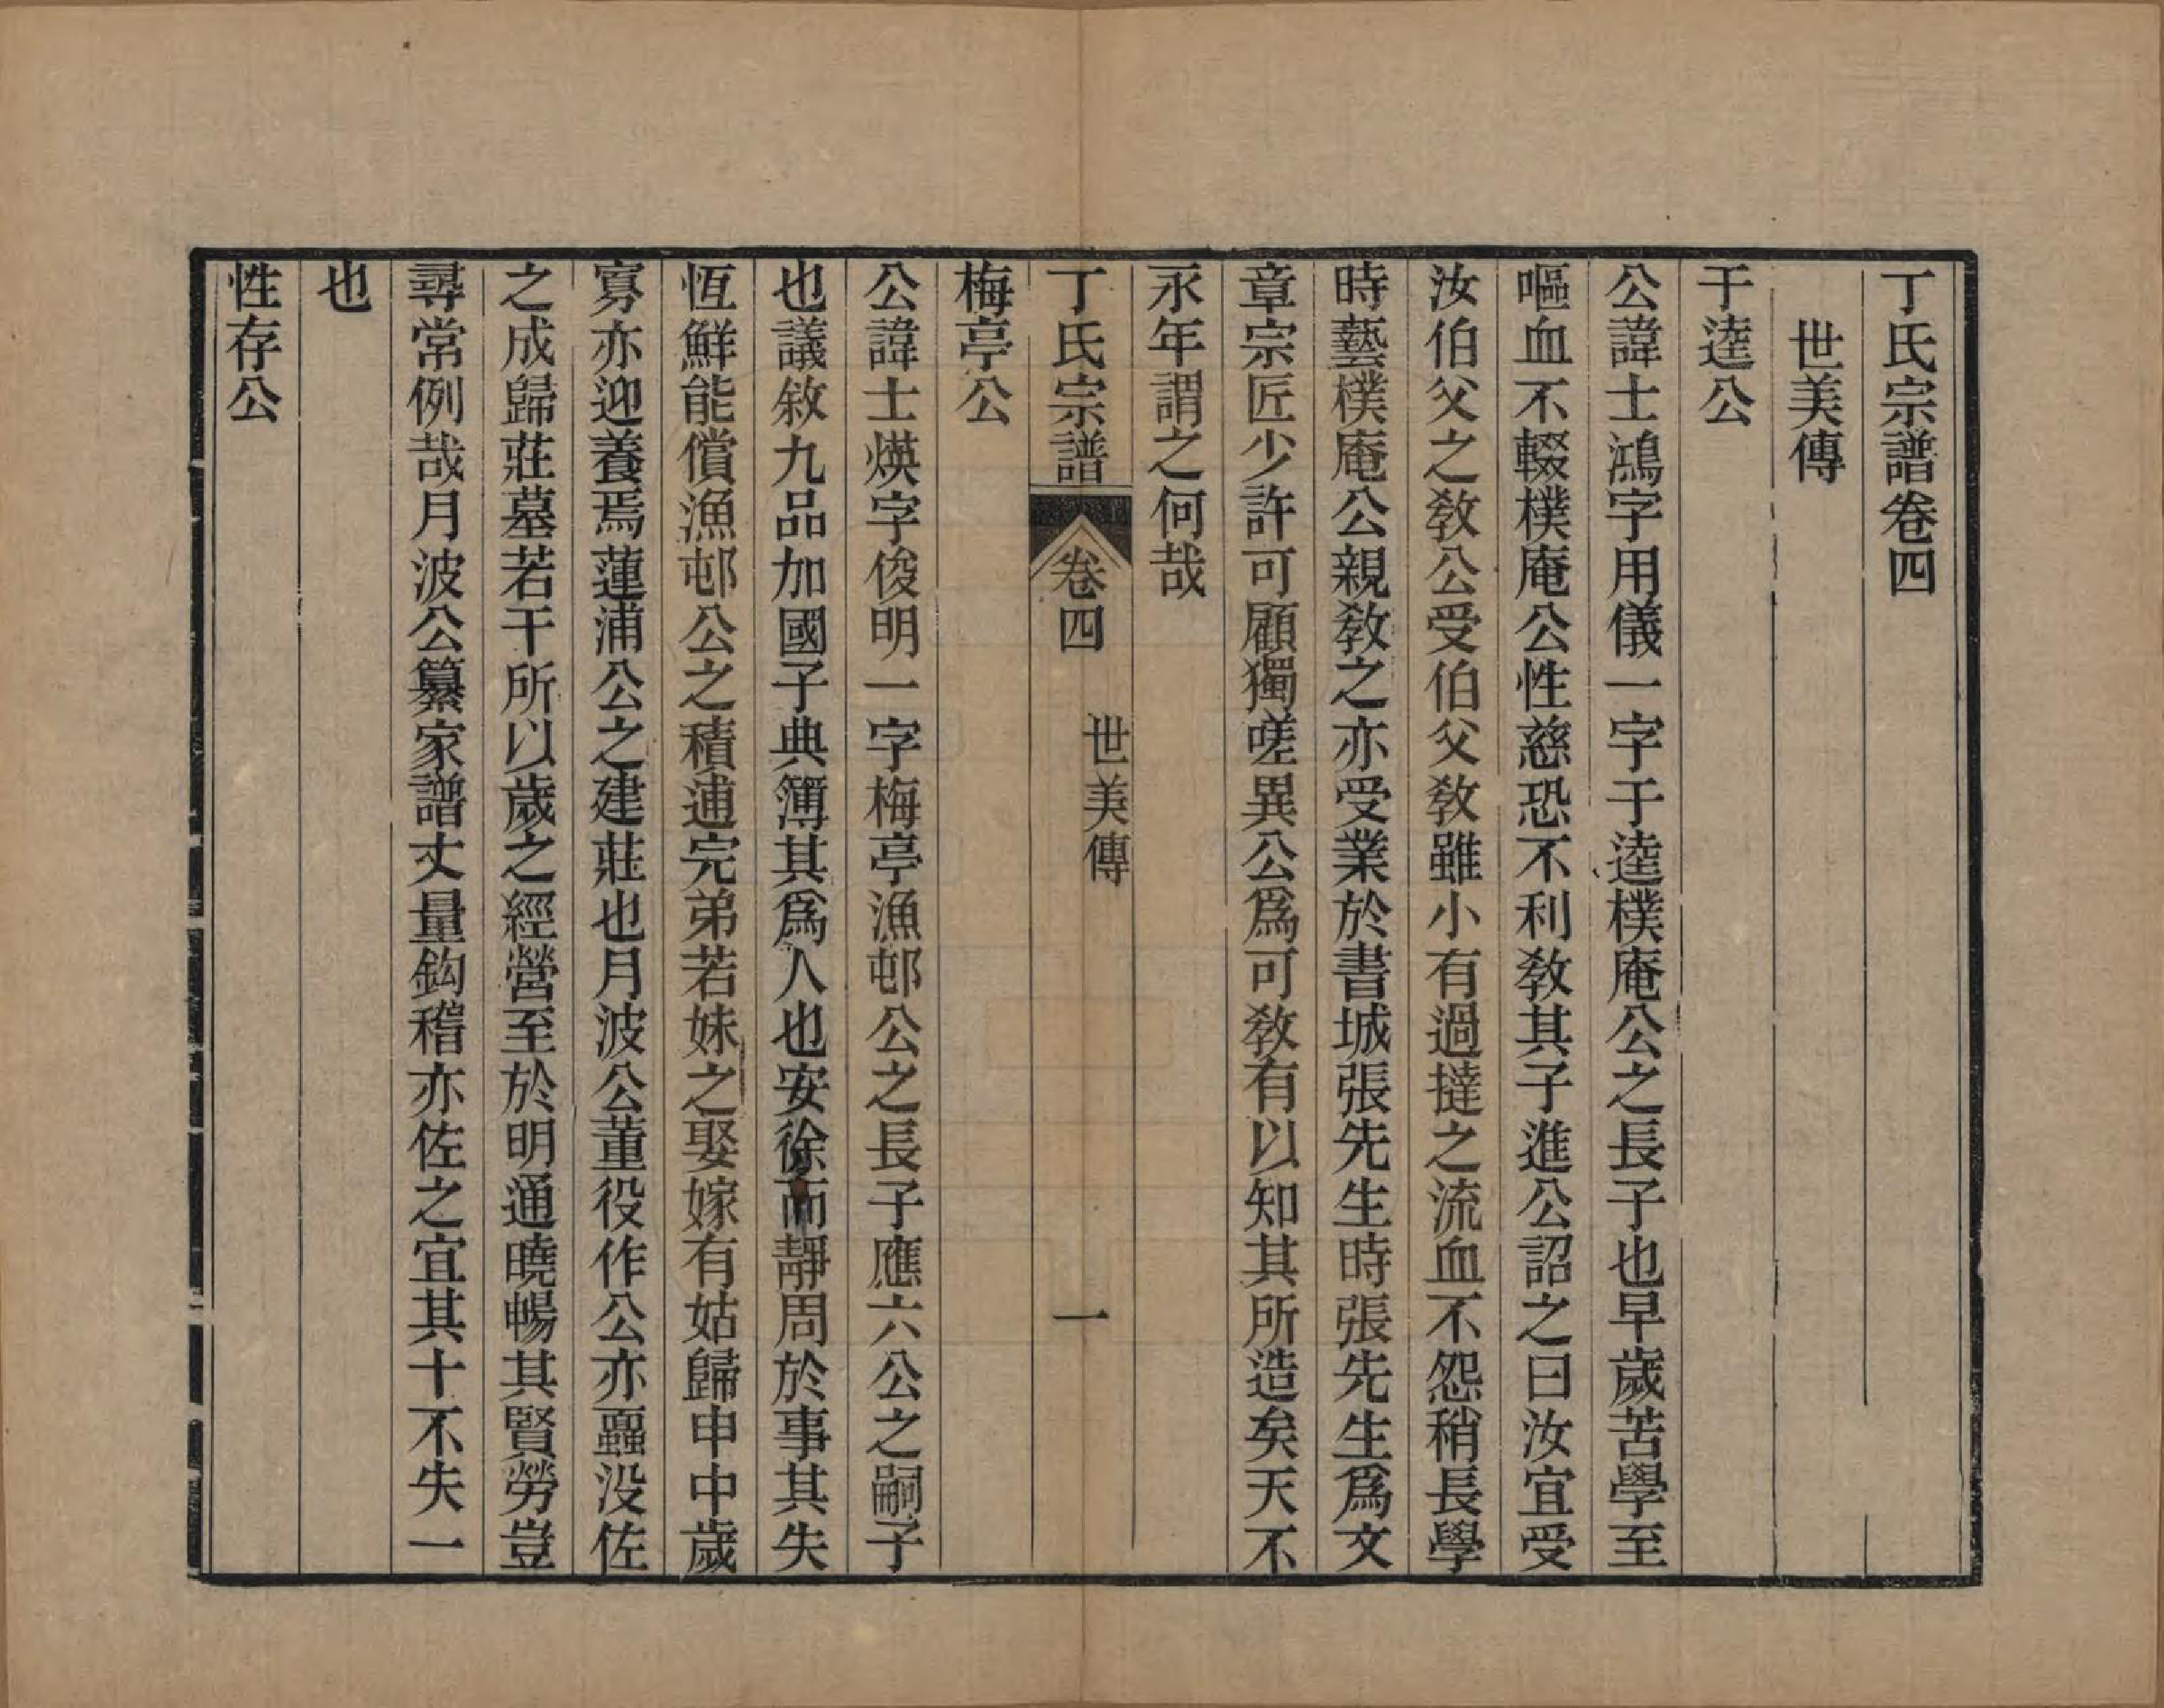 丁氏宗譜卷四
世美傳
于逵公
公諱士鴻字用儀一字于逵樸庵公之長子也早歲苦學至
嘔血不輟樸庵公性慈恐不利敎其子進公詔之曰汝宜受
汝伯父之敎公受伯父敎雖小有過撻之流血不怨稍長學
時藝樸庵公親敎之亦受業於書城張先生時張先生爲文
章宗匠少許可顧獨嗟異公爲可敎有以知其所造矣天不
永年謂之何哉
丁氏宗譜 卷四 世美傳 一
梅亭公
公諱士煐字俊明一字梅亭漁邨公之長子應六公之嗣子
也議敘九品加國子典簿其爲人也安徐而靜周於事其失
恆鮮能償漁邨公之積逋完弟若妹之娶嫁有姑歸申中歲
寡亦迎養焉蓮浦公之建莊也月波公董役作公亦蠠没佐
之成歸莊墓若干所以歲之經營至於明通曉暢其賢勞豈
尋常例哉月波公纂家譜丈量鈎稽亦佐之宜其十不失一
也
性存公